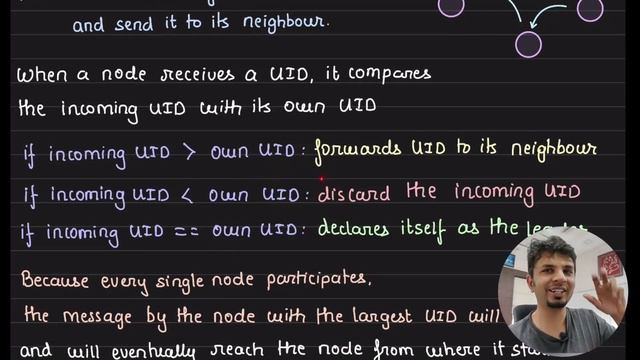 and send it to its neighbour.
When a node receives a UID, it compares
the incoming UID with its own UID
if incoming UID > own UID: forwards UID to its neighbour
if incoming UID < own UID: discard the incoming UID
if incoming UID == own UID: declares itself as the leader
Because every single node participates,
the message by the node with the largest UID will
and will eventually reach the node from where it